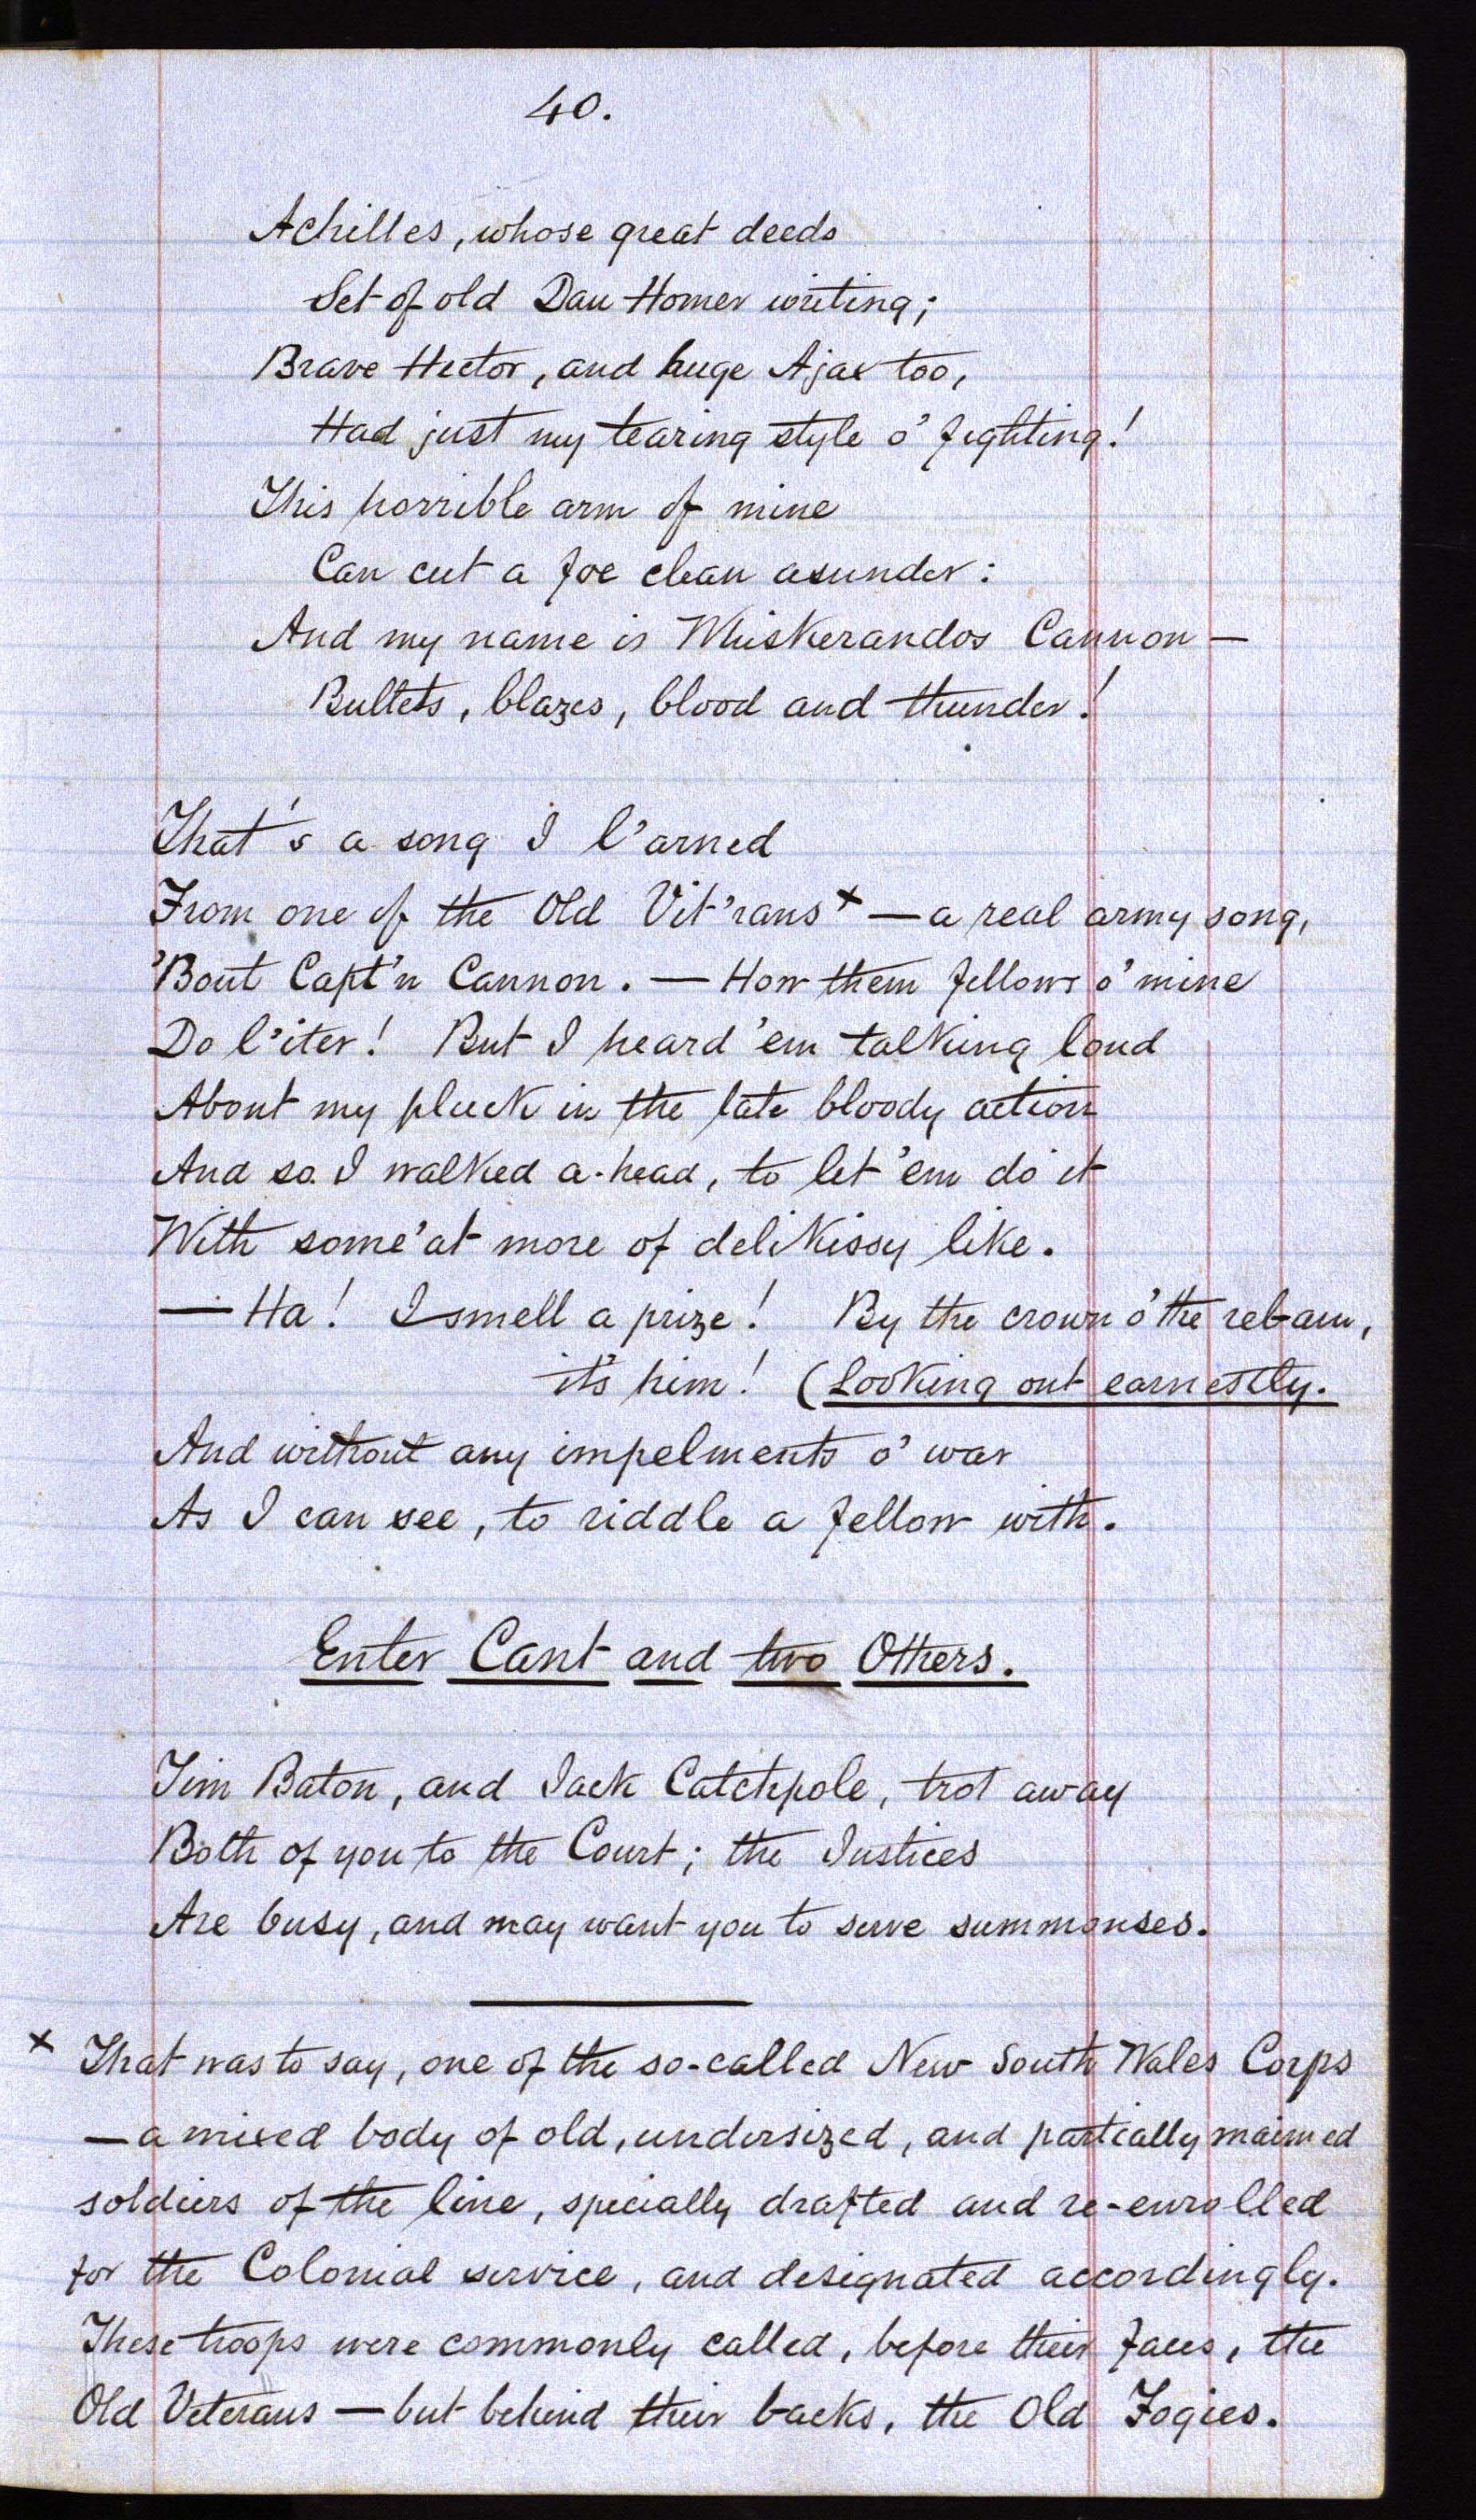 40.
Achilles, whose great deeds
Set of old Dan Homer writing;
Brave Hector, and huge Ajax too,
Had just my tearing style o' fighting!
This horrible arm of mine
Can cut a foe clean asunder:
And my name is Whiskerandos Cannon —
Bullets, blazes, blood and thunder!
That's a song I l'arned
From one of the Old Vit'rans x — a real army song,
'Bout Capt'n Cannon. — How them fellows o' mine
Do l'iter! But I heard 'em talking loud
About my pluck in the late bloody action
And so I walked a-head, to let 'em do it
With some'at more of delikissy like.
— Ha! I smell a prize! By the crown o' the rel-am,
it's him! (Looking out earnestly.
And without any impelments o' war
As I can see, to riddle a fellow with.
Enter Cant and two Others.
Tim Baton, and Jack Catchpole, trot away
Both of you to the Court; the Justices
Are busy, and may want you to serve summonses.
x That was to say, one of the so-called New South Wales Corps
— a mixed body of old, undersized, and partially maimed
soldiers of the line, specially drafted and re-enrolled
for the Colonial service, and designated accordingly.
These troops were commonly called, before their faces, the
Old Veterans — but behind their backs, the Old Fogies.